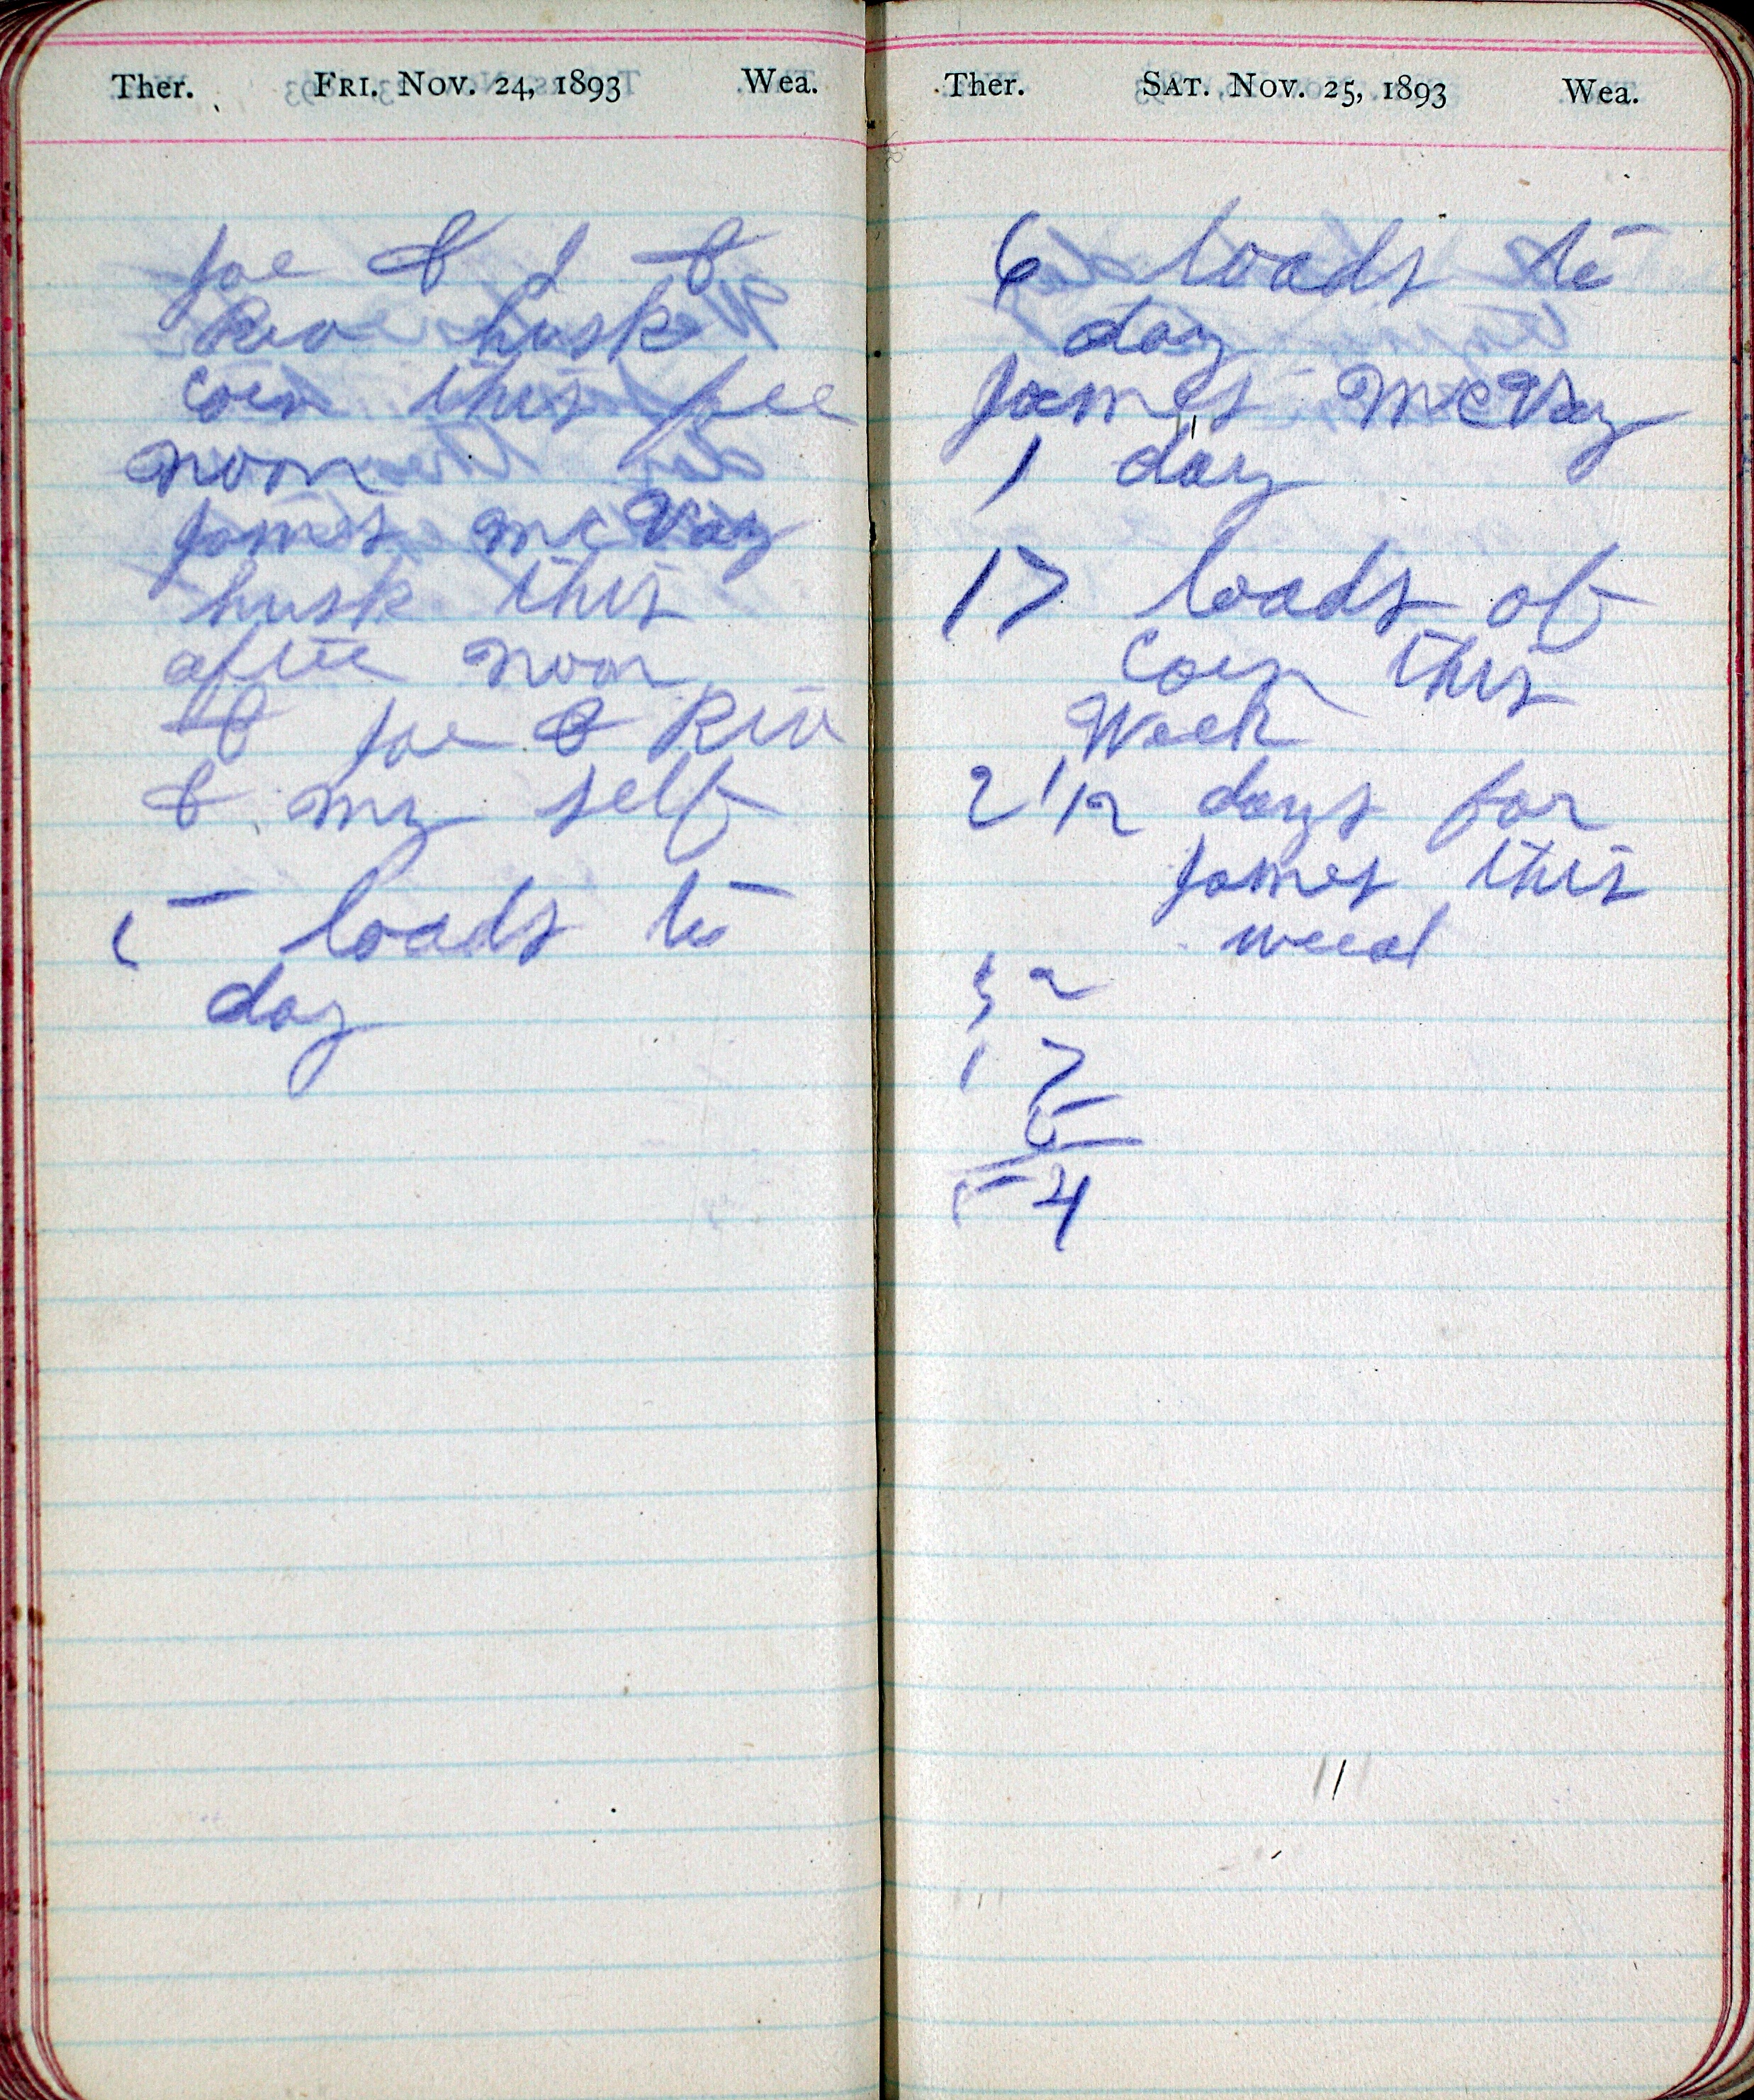 Ther. FRI. NOV. 24, 1893 Wea.
Joe & I &
Reo husk
corn this fore
noon
James McVay
husk this
after noon
& Joe & Reo
& my self
5 loads to
day
Ther. SAT. NOV. 25, 1893 Wea.
6 loads to
day
James McVay
1 day
17 loads of
corn this
Week
2 1/2 days for
James this
week
32
17
5
54